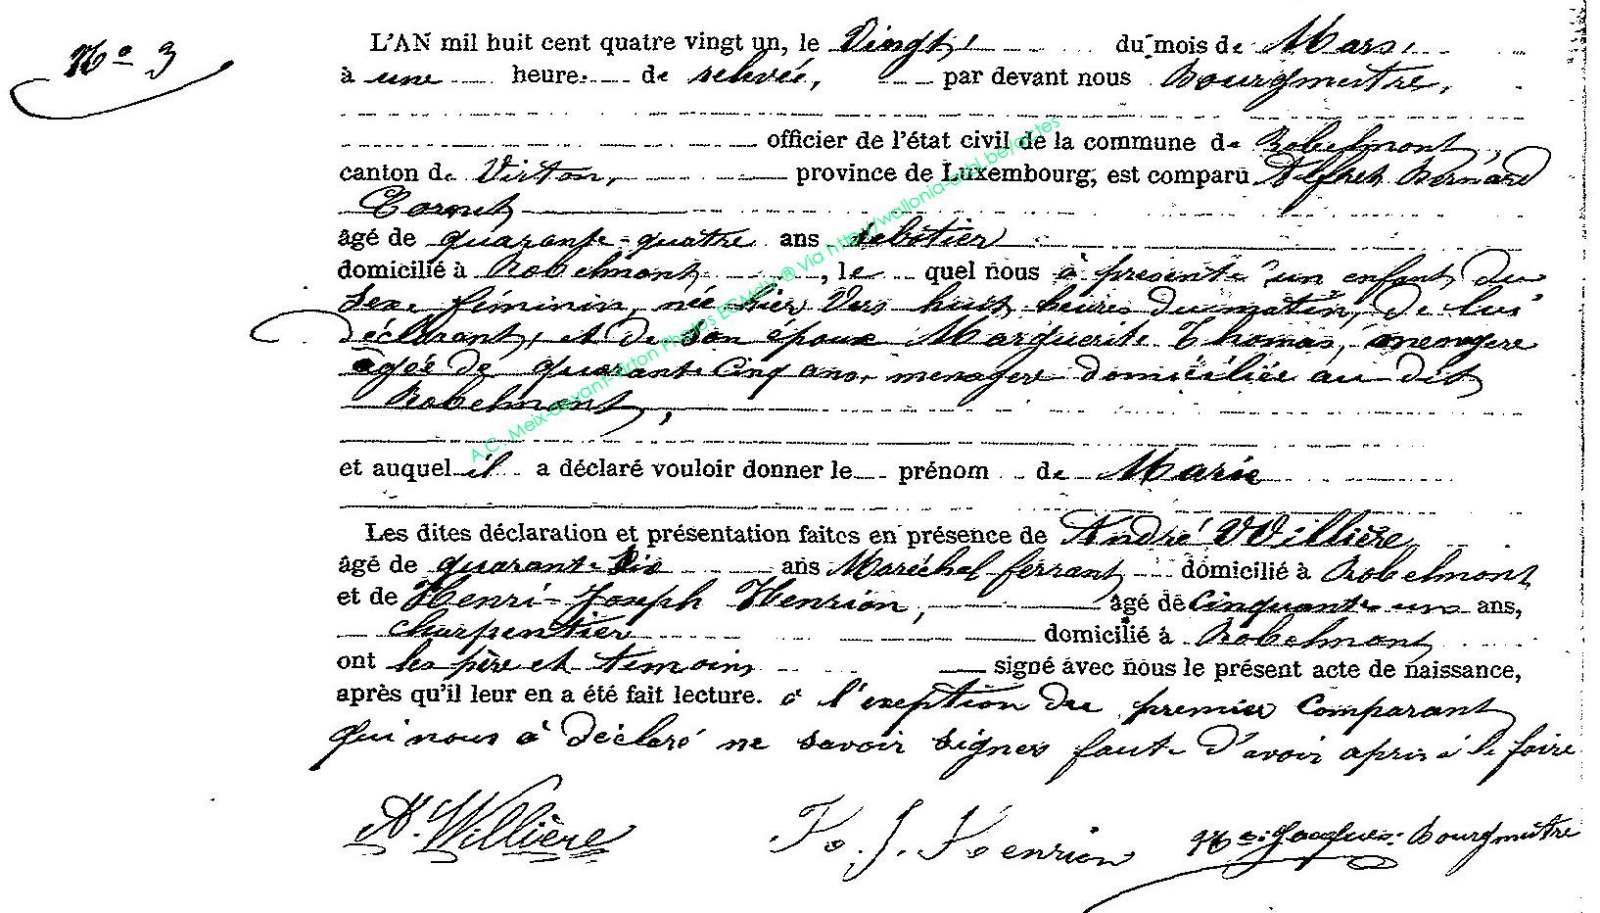 No 3
L'AN mil huit cent quatre vingt un, le Vingt, du mois de Mars,
à une heure de relevée, par devant nous Bourgmestre,
officier de l'état civil de la commune de Robelmont,
canton de Virton, province de Luxembourg, est comparu Alfred Bernard
Cornet
âgé de quarante-quatre ans sabotier
domicilié à Robelmont, le quel nous à presenté un enfant du
sexe féminin, née hier vers huit heures du matin, de lui
déclarant, et de son épouse Marguerite Thomas, menagere
agée de quarante cinq ans, menagere domiciliée au dit
Robelmont,
et auquel il a déclaré vouloir donner le prénom de Marie
Les dites déclaration et présentation faites en présence de André Willière
âgé de quarante six ans Maréchal ferrant domicilié à Robelmont
et de Henri-Joseph Henrion, âgé de cinquante un ans,
charpentier domicilié à Robelmont
ont les père et temoins signé avec nous le présent acte de naissance,
après qu'il leur en a été fait lecture. à l'exeption du premier Comparant
qui nous à déclaré ne savoir signer faute d'avoir apris à le faire
A. Willière H. J. Henrion Jacques Bourgmestre